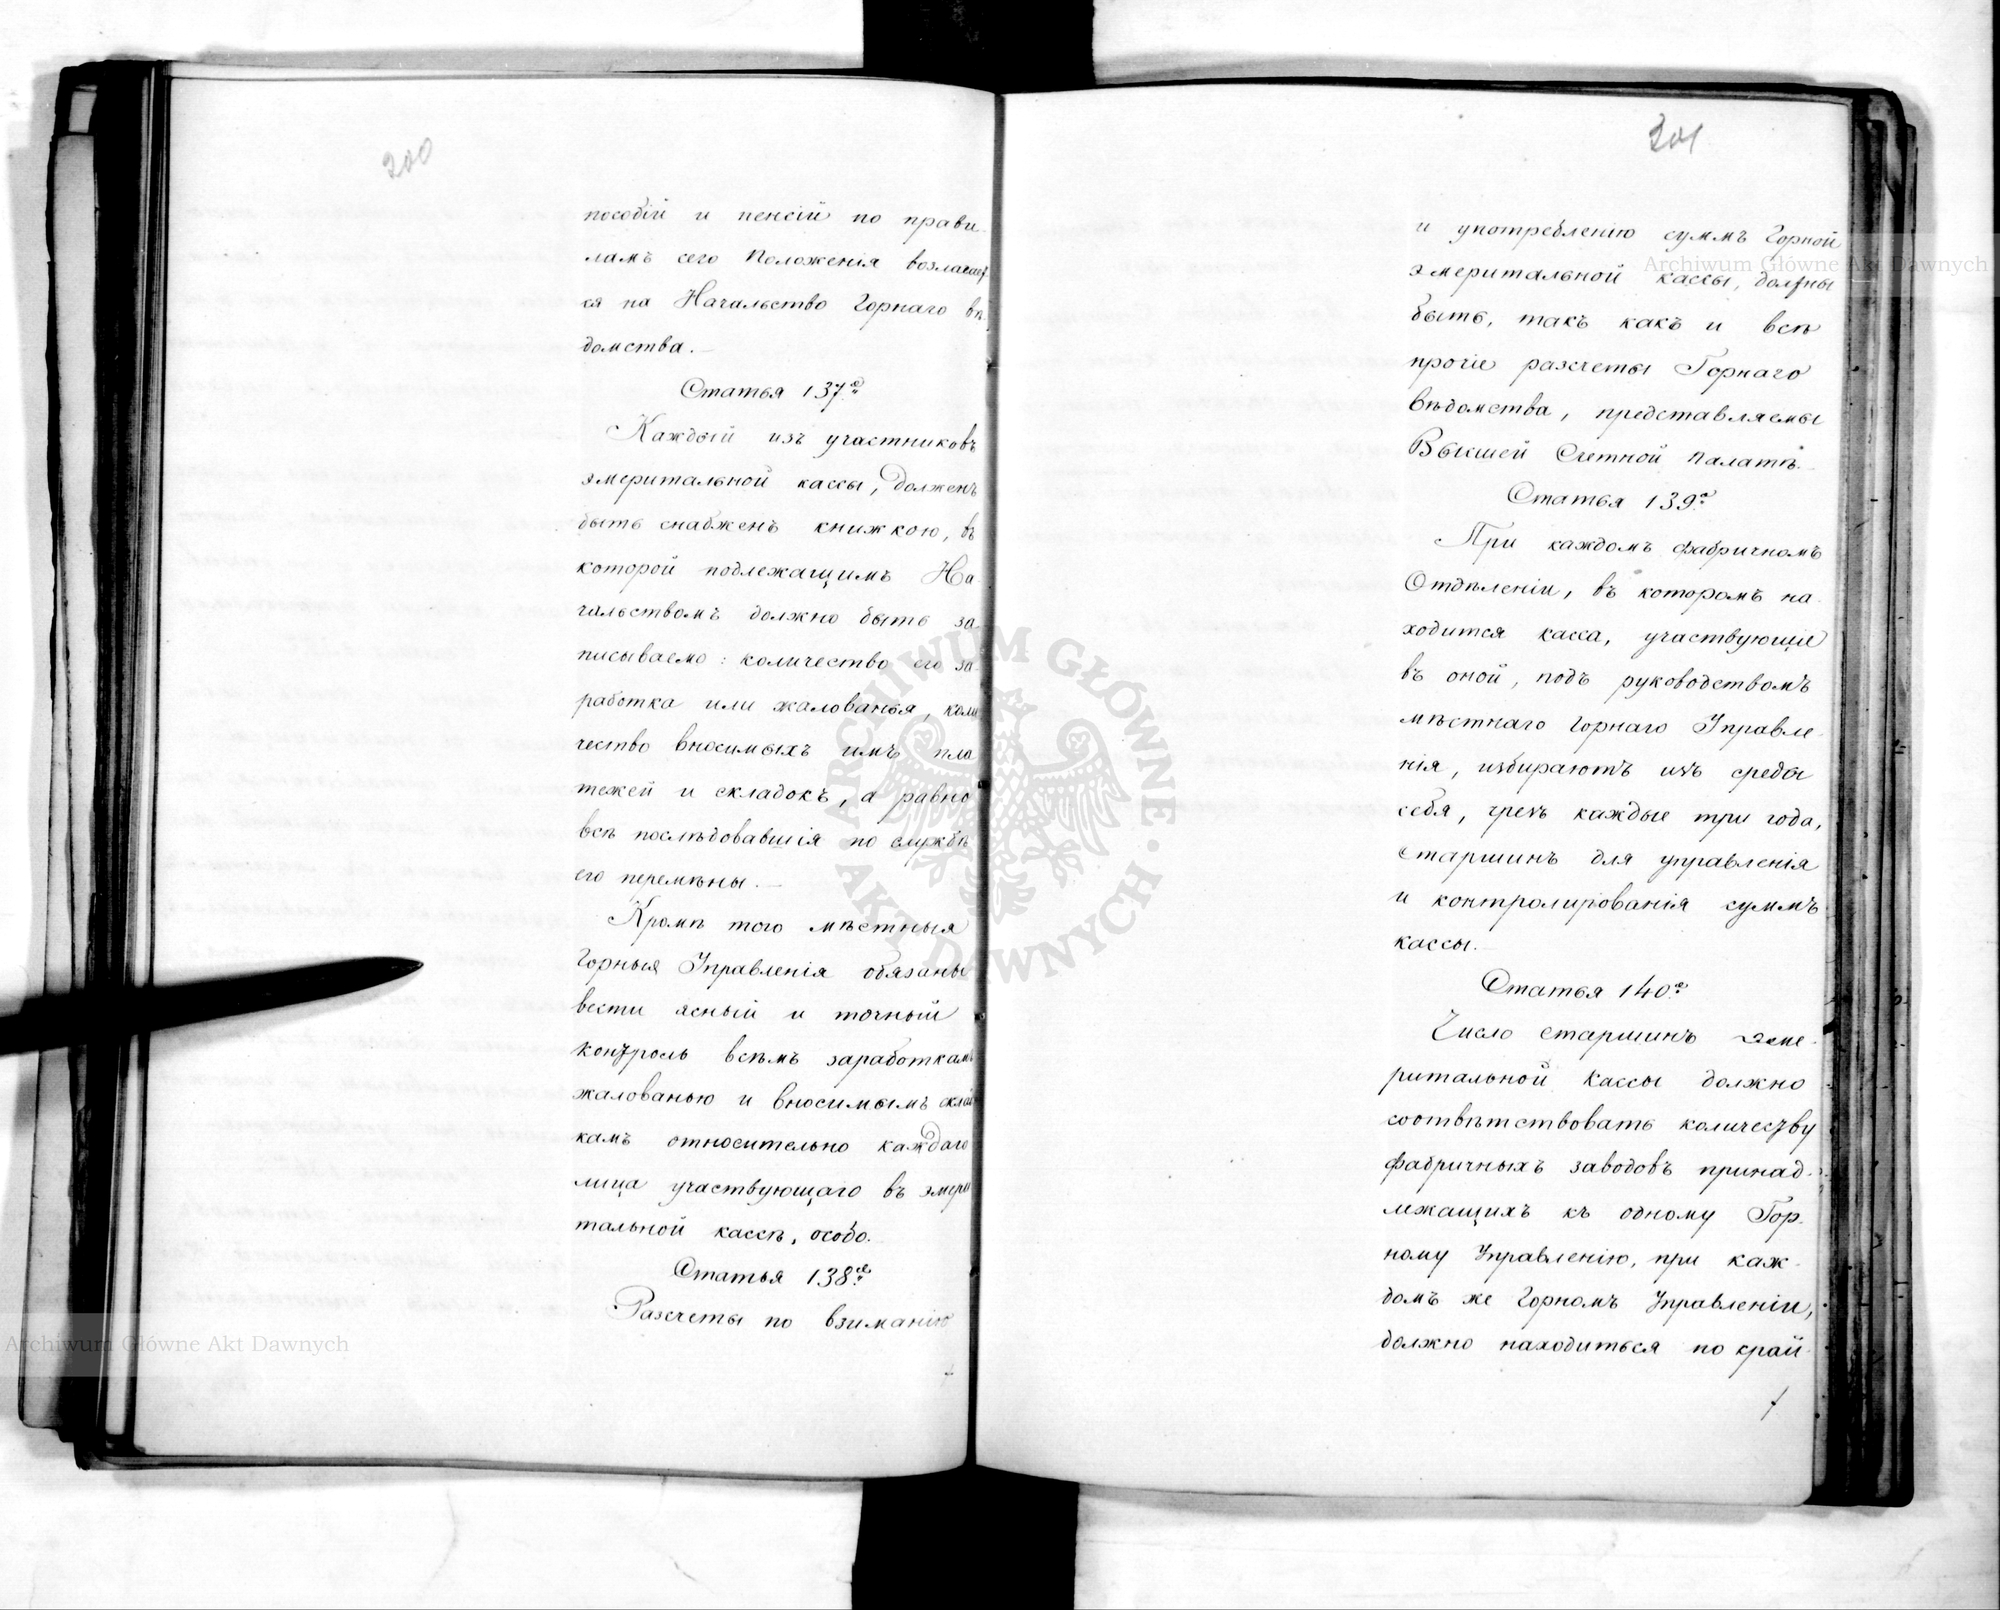 200
пособій и пенсій по прави-
ламъ сего Положенія возлагает
ся на Начальство Горнаго вѣ-
домства. —
Статья 137.я
Каждый изъ участниковъ
эмеритальной кассы, долженъ
быть снабженъ книжкою, въ
которой подлежащимъ На-
чальствомъ должно быть за-
писываемо: количество его за
работка или жалованья, коли
чество вносимыхъ имъ пла
тежей и складокъ, а равно
всѣ послѣдовавшія по службѣ
его перемѣны. —
Кромѣ того мѣстныя
Горныя Управленія обязаны
вести ясный и точный
контроль всѣмъ заработкамъ
жалованью и вносимымъ склад
камъ относительно каждаго
лица участвующаго въ эмери
тальной кассѣ, особо. —
Статья 138.я
Разсчеты по взиманію
201
и употребленію суммъ Горной
эмеритальной кассы, должны
быть, такъ какъ и всѣ
прочіе разсчеты Горнаго
вѣдомства, представляемы
Высшей Счетной Палатѣ. —
Статья 139.я
При каждомъ фабричномъ
Отдѣленіи, въ которомъ на-
ходится касса, участвующіе
въ оной, подъ руководствомъ
мѣстнаго Горнаго Управле-
нія, избираютъ изъ среды
себя, чрезъ каждые три года,
старшинъ для управленія
и контролированія суммъ
кассы. —
Статья 140.я
Число старшинъ эме-
ритальной кассы должно
соотвѣтствовать количеству
фабричныхъ заводовъ принад-
лежащихъ къ одному Гор-
ному Управленію, при каж-
домъ же Горномъ Управленіи,
должно находиться по край-
Archiwum Główne Akt Dawnych
ARCHIWUM GŁÓWNE AKT DAWNYCH
Archiwum Główne Akt Dawnych